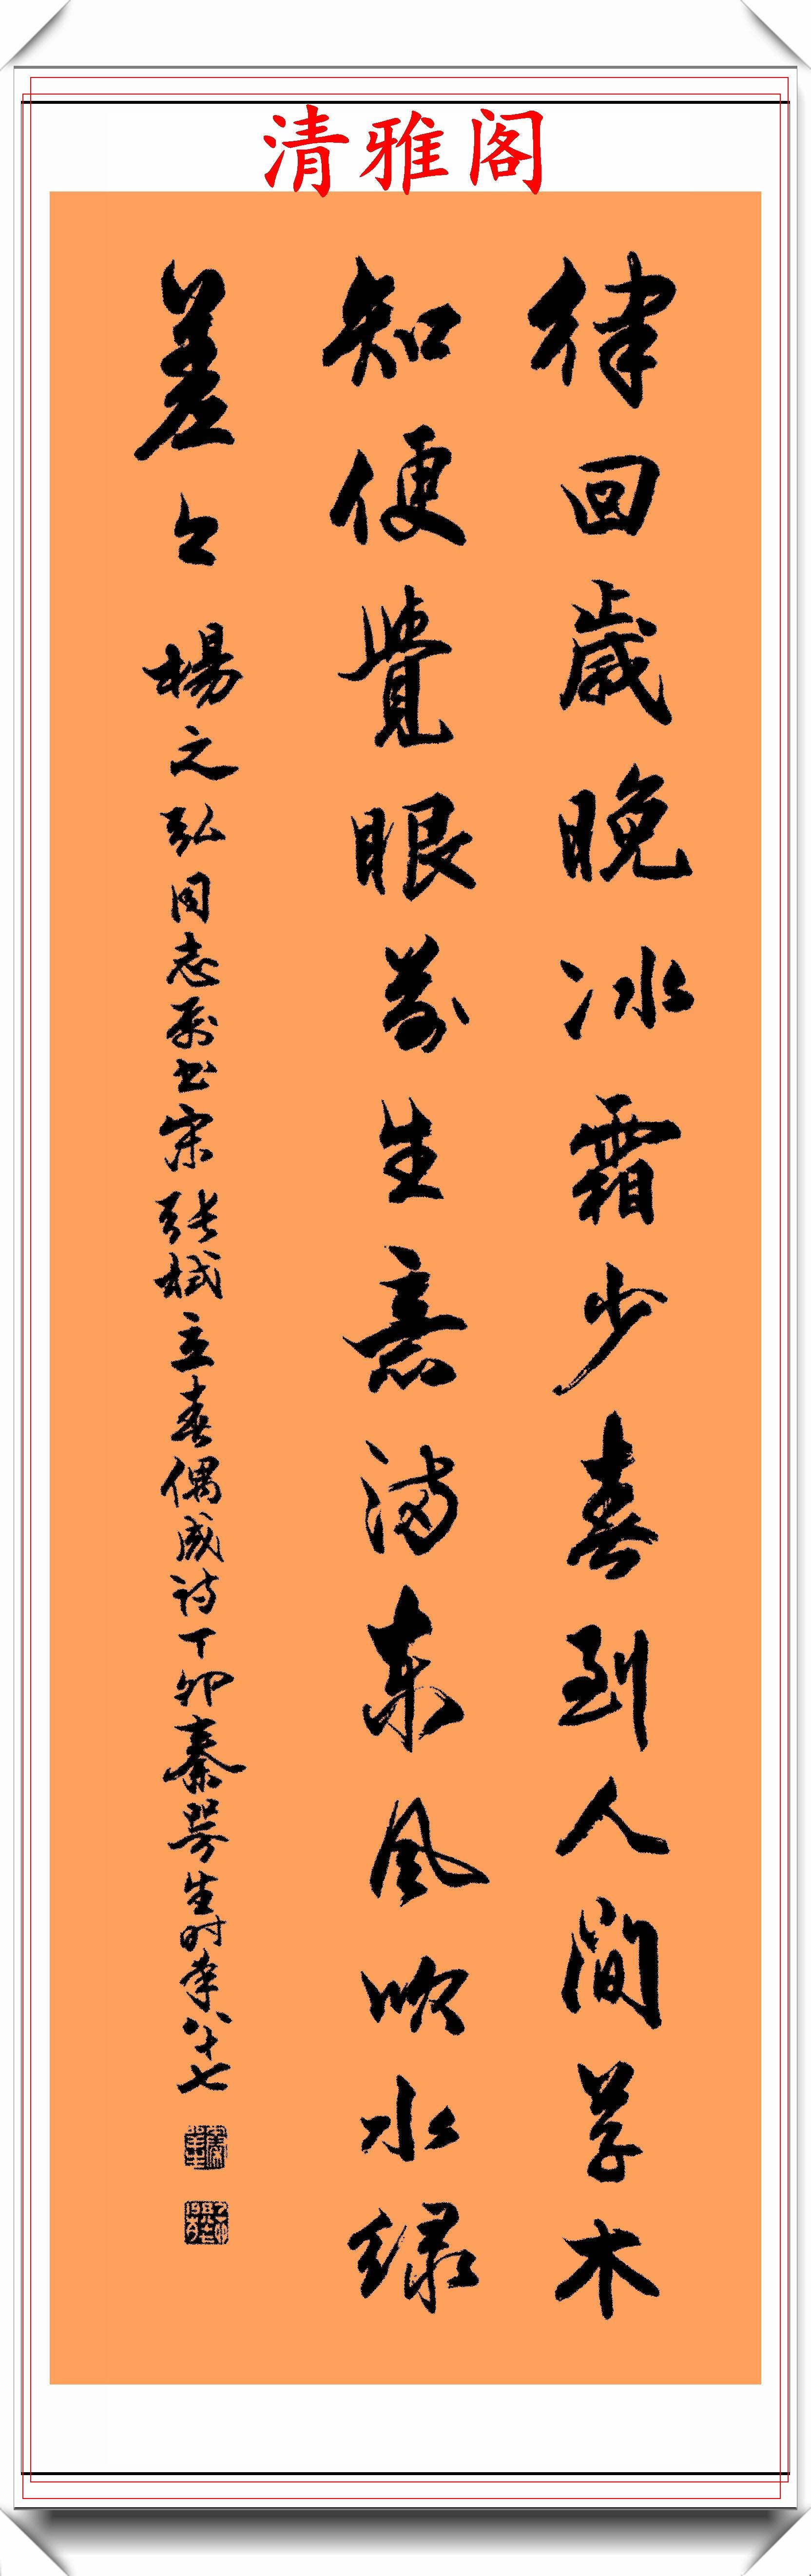 清雅阁
律回歲晚冰霜少春到人間草木
知便覺眼前生意滿東風吹水綠
差々 楊之弘同志属书宋張栻立春偶成詩丁卯秦咢生时年八十七